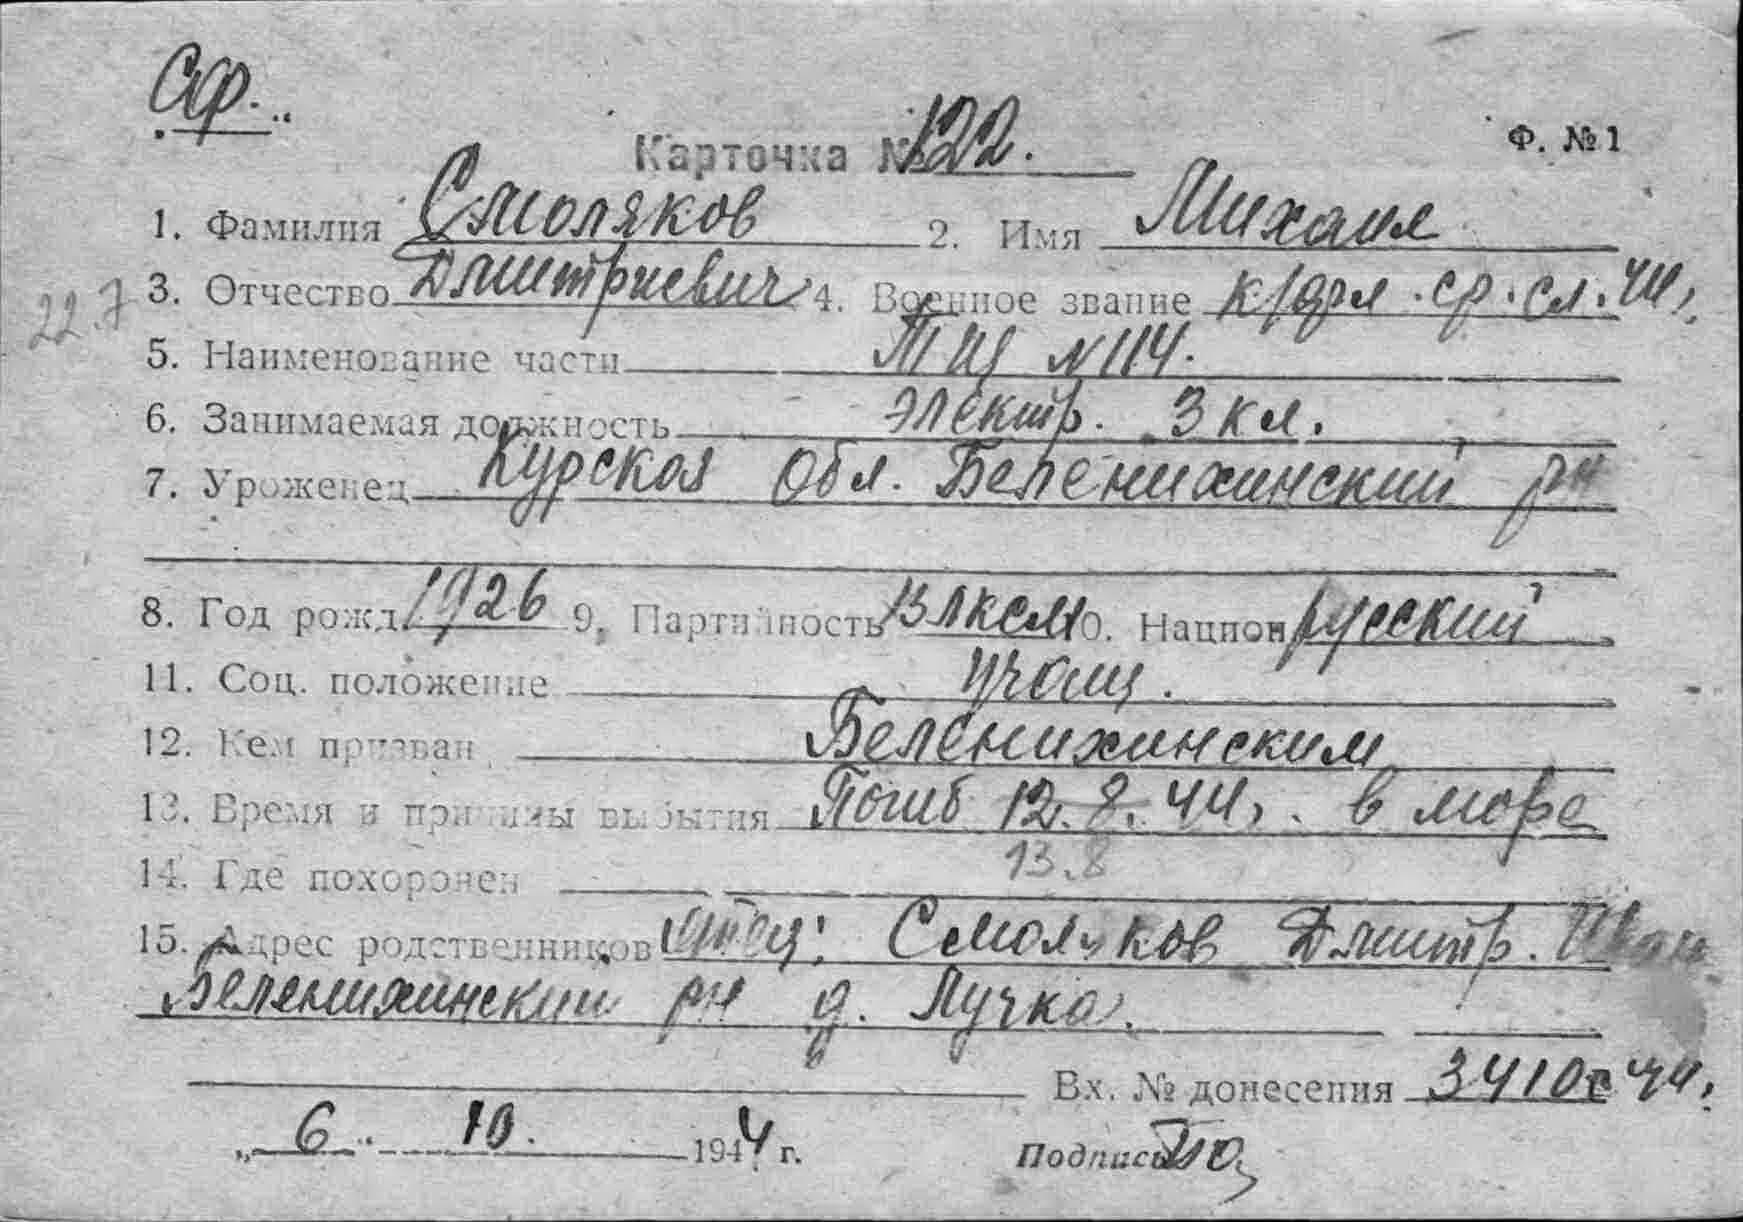 СФ.
Карточка № 122.
Ф. № 1
1. Фамилия Смоляков 2. Имя Михаил
3. Отчество Дмитриевич 4. Военное звание к/фл. ср. сл. 44
22.7
5. Наименование части ТЩ N 114.
6. Занимаемая должность электр. 3 кл.
7. Уроженец Курская обл. Беленихинский рн
8. Год рожд. 1926 9. Партийность ВЛКСМ 10. Национ русский
11. Соц. положение учащ.
12. Кем призван Беленихинским
13. Время и причины выбытия Погиб 12.8.44. в море
13.8
14. Где похоронен
15. Адрес родственников отец: Смоляков Дмитр. Иван
Беленихинский рн д. Лучка.
Вх. № донесения 3410с 44.
„ 6 " 10. 1944 г. Подпись